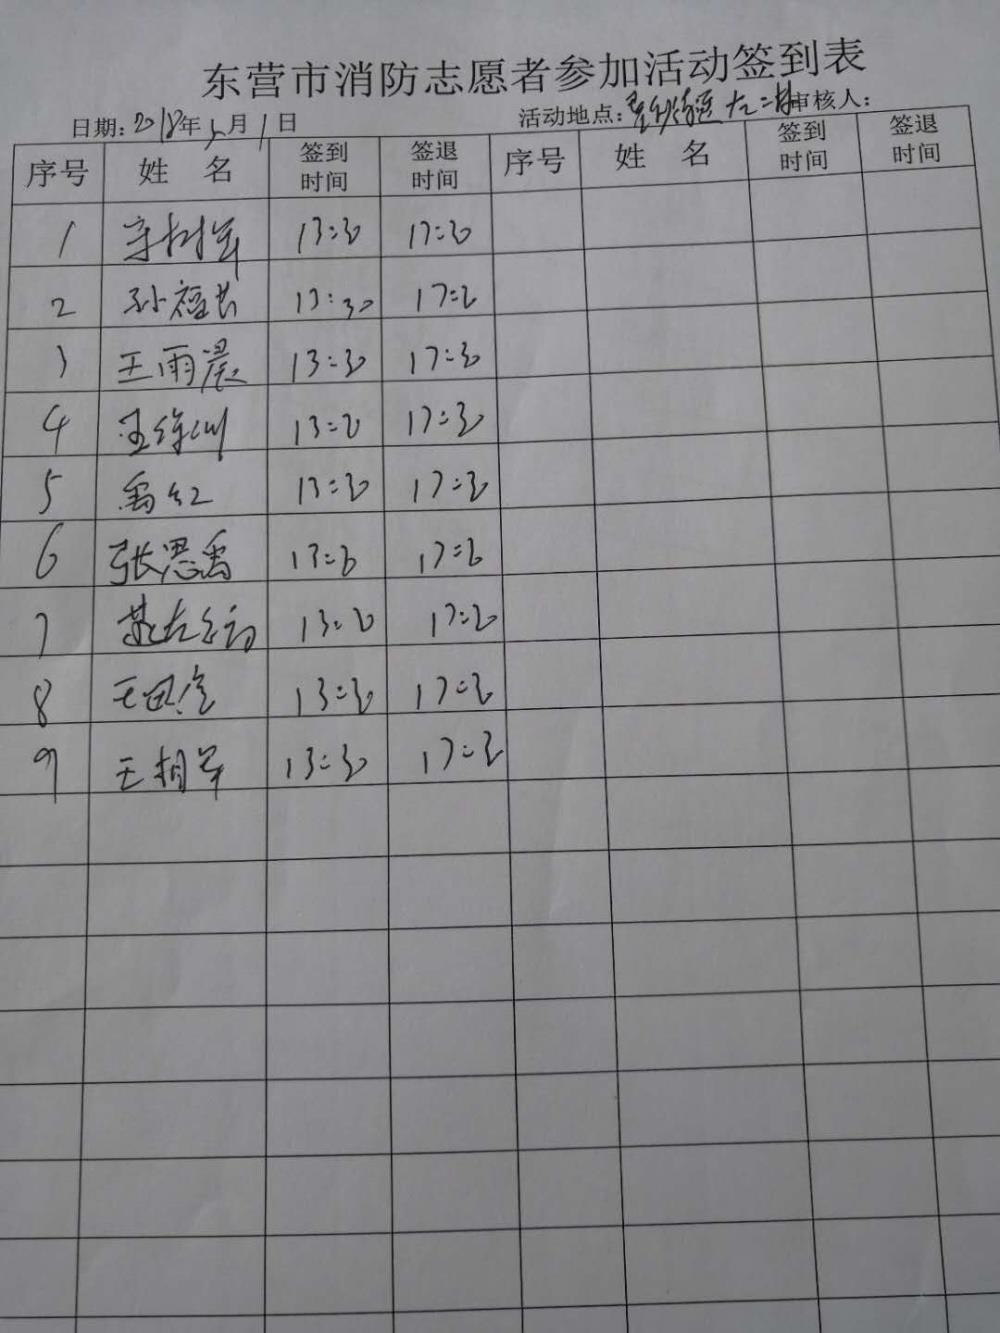 东营市消防志愿者参加活动签到表
日期:2018年5月1日 活动地点: 审核人:
序号 姓 名 签到时间 签退时间 序号 姓 名 签到时间 签退时间
1 17:30
2 孙福长 13:30 17:30
3 王雨晨 13:30 17:30
4 13:30 17:30
5 禹红 13:30 17:30
6 张思禹 13:30 17:30
7 13:30 17:30
8 13:30 17:30
9 王相军 13:30 17:30